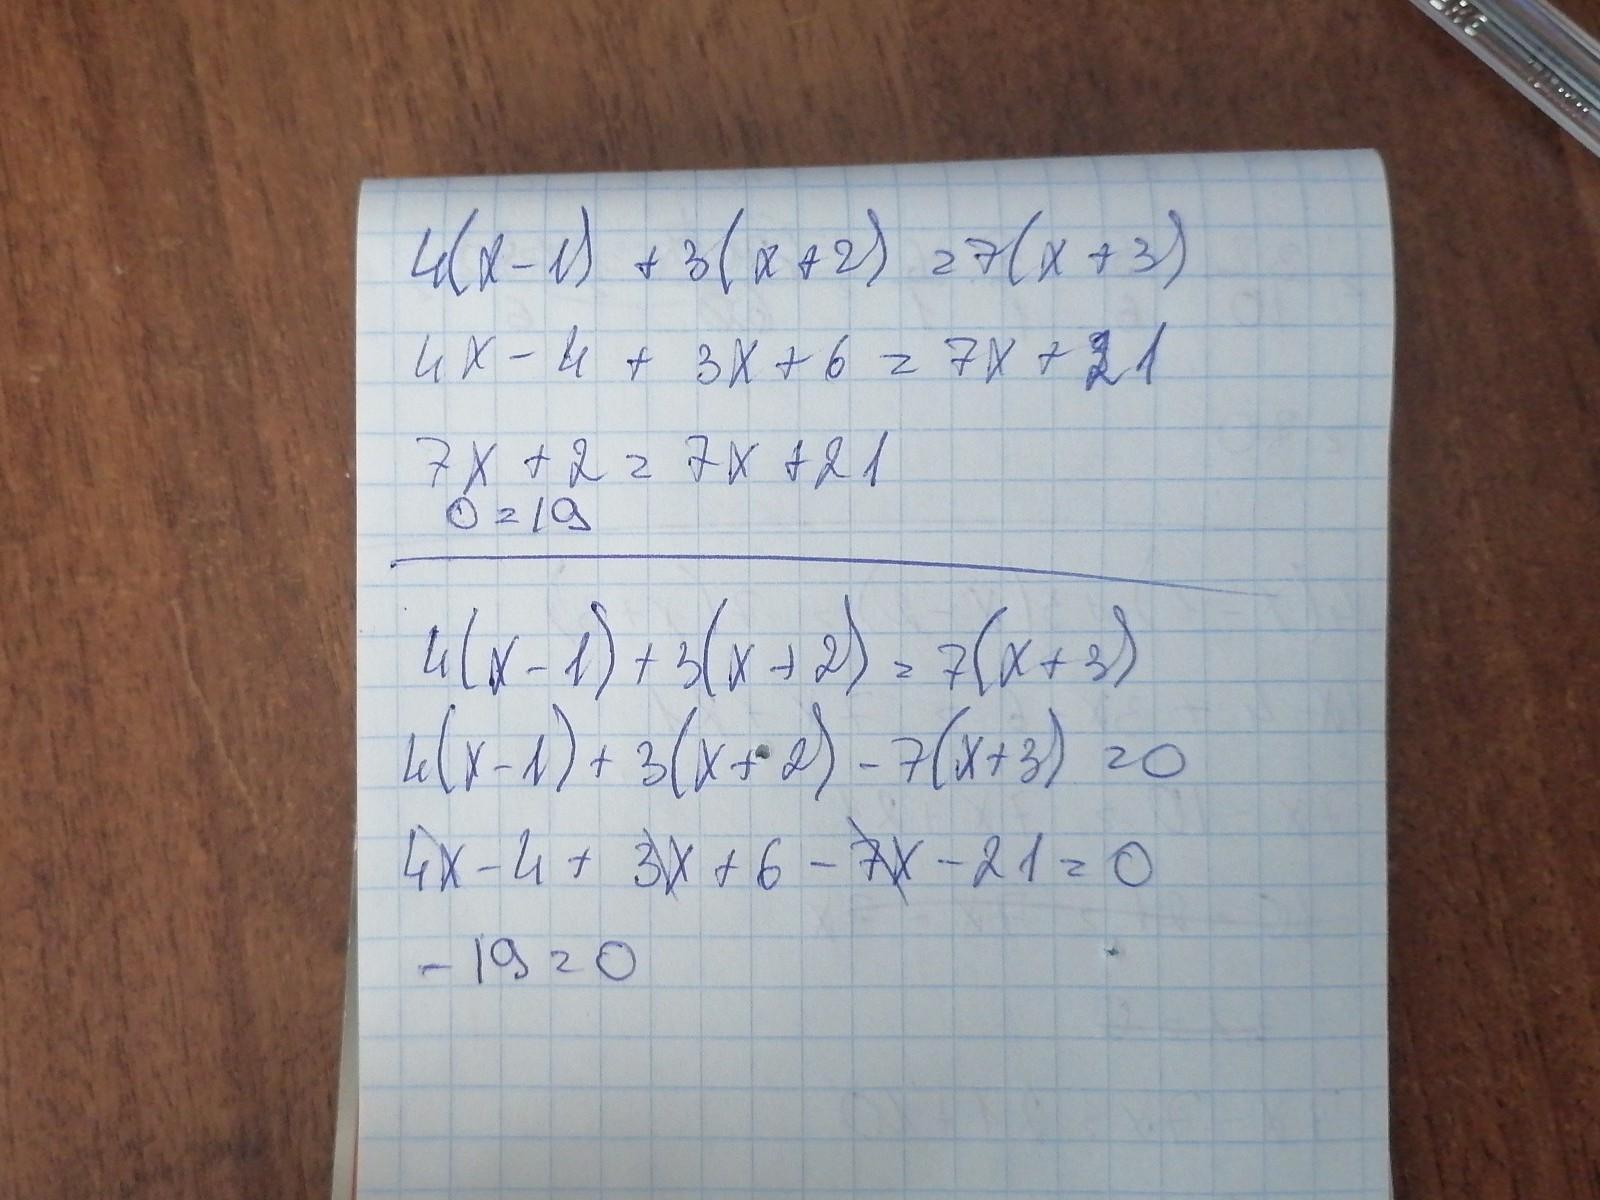 4(x-1) + 3(x+2) = 7(x+3)
4x - 4 + 3x + 6 = 7x + 21
7x + 2 = 7x + 21
0 = 19
4(x-1) + 3(x+2) = 7(x+3)
4(x-1) + 3(x+2) - 7(x+3) = 0
4x - 4 + 3x + 6 - 7x - 21 = 0
-19 = 0